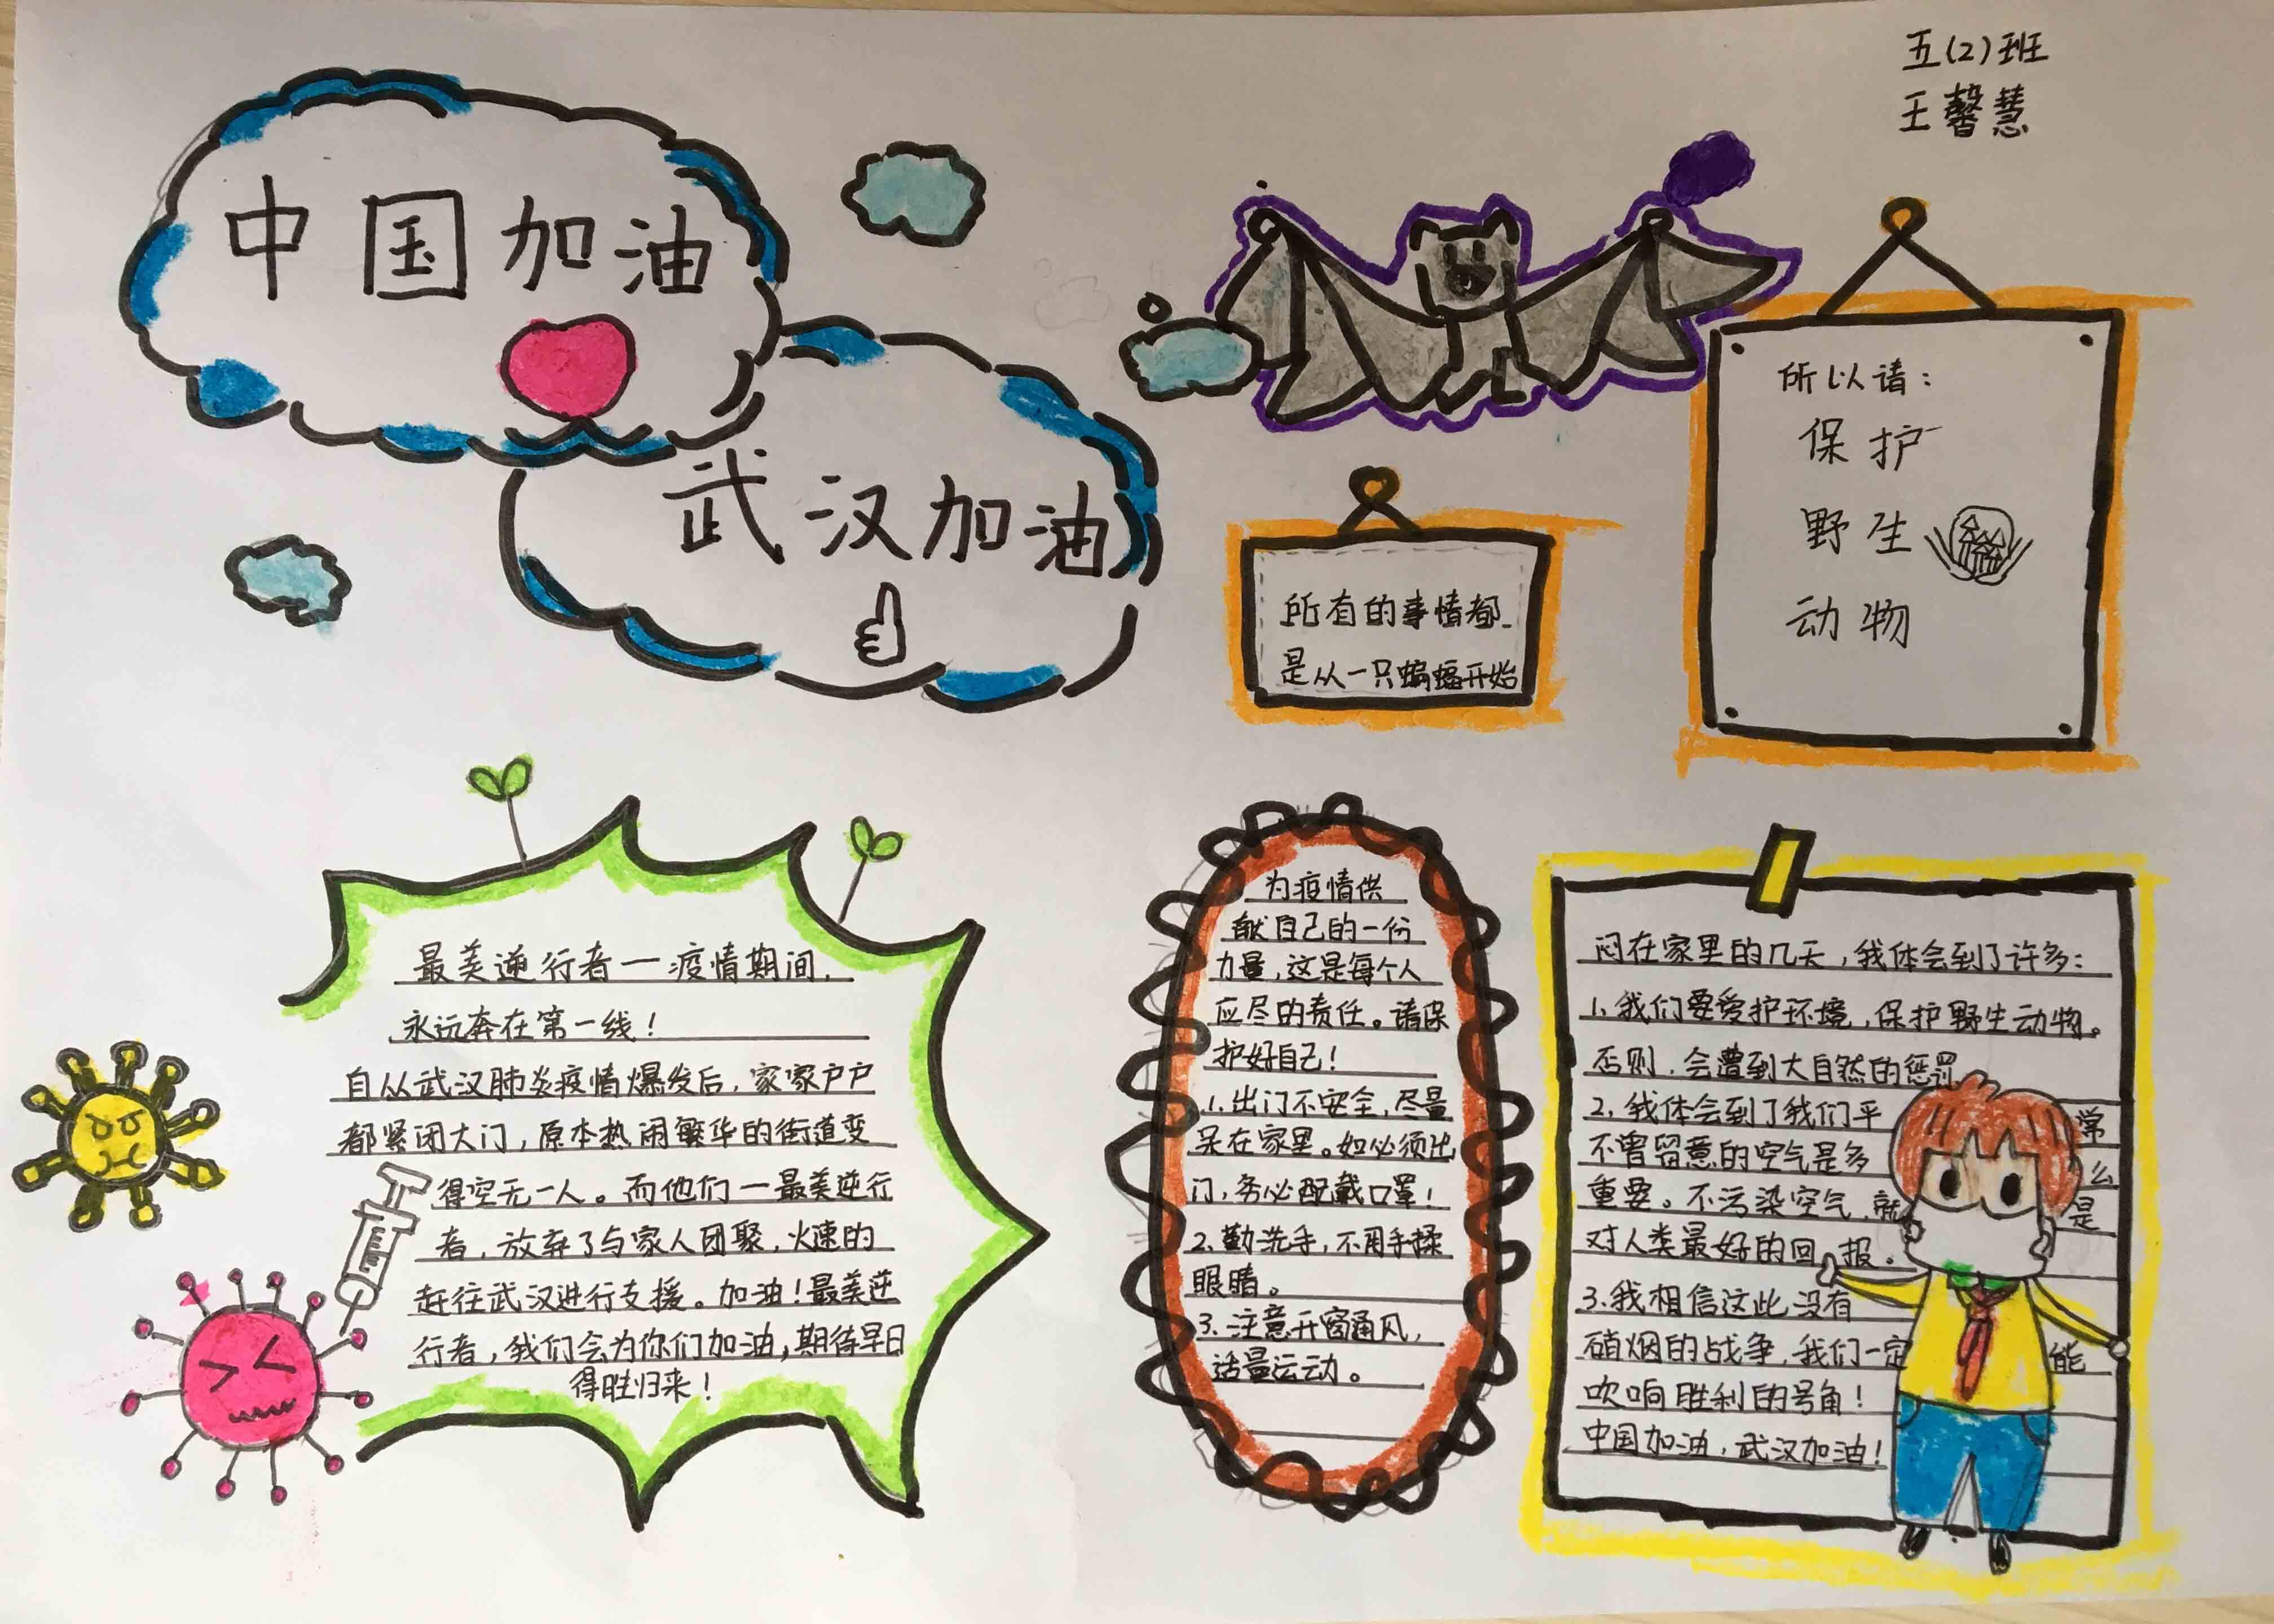 五(2)班
王馨慧
中国加油
武汉加油
所有的事情都
是从一只蝙蝠开始
所以请：
保护
野生
动物
最美逆行者一疫情期间，
永远奔在第一线！
自从武汉肺炎疫情爆发后，家家户户
都紧闭大门，原本热闹繁华的街道变
得空无一人。而他们一最美逆行
者，放弃了与家人团聚，火速的
赶往武汉进行支援。加油！最美逆
行者，我们会为你们加油，期待早日
得胜归来！
为疫情供
献自己的一份
力量，这是每个人
应尽的责任。请保
护好自己！
1.出门不安全，尽量
呆在家里。如必须出
门，务必配戴口罩！
2.勤洗手，不用手揉
眼睛。
3.注意开窗通风，
适量运动。
闷在家里的几天，我体会到了许多：
1.我们要爱护环境，保护野生动物。
否则，会遭到大自然的惩罚
2.我体会到了我们平常
不曾留意的空气是多么
重要。不污染空气，就是
对人类最好的回报。
3.我相信这此没有
硝烟的战争，我们一定能
吹响胜利的号角！
中国加油，武汉加油！